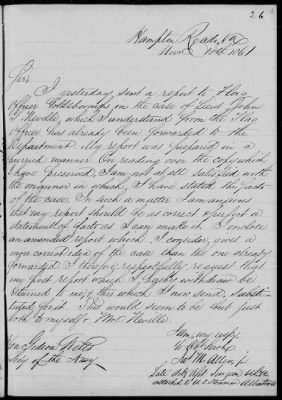 26
Hampton Roads, Va
Novr 1861
Sir
I yesterday sent a report to Flag
Officer Goldsborough in the case of Lieut John
Neville, which I understand from the Flag
Officer has already been forwarded to the
Department. My report was prepared in a
hurried manner. On reading over the copy which
I have preserved, I am not at all satisfied with
the manner in which I have stated the facts
of the case. In such a matter I am anxious
that my report should be as correct & perfect a
statement of facts as I can make it. I enclose
an amended report which I consider, gives a
more correct idea of the case than the one already
forwarded. I therefore respectfully request that
my first report which I hereby withdraw be
returned to me, & this which I now send substi-
tuted for it. This would seem to be but just
both to myself & Mr Neville.
I am, very respy
Yr obt Servt
Hon Gideon Welles
Secy of the Navy
Jno M. Allen Jr
Late Actg Asst Surgeon
attached to U.S. Steamer Albatross